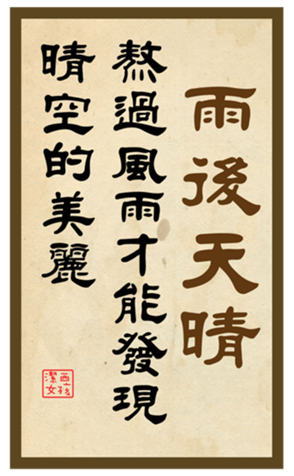 雨後天晴
熬過風雨才能發現
晴空的美麗